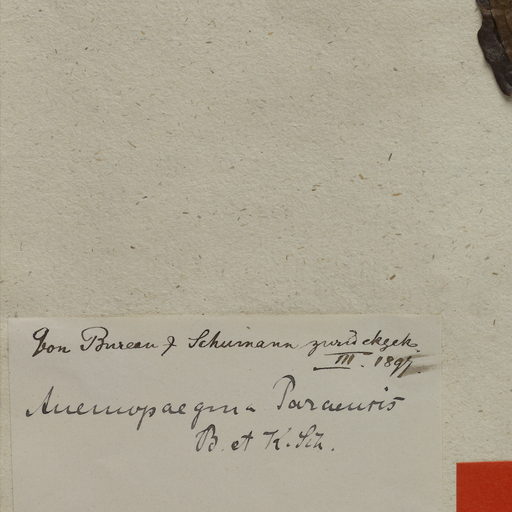 Von Bureau & Schumann zurückgek.
III. 1897.
Anemopaegma Paraensis
B. et K. Sch.